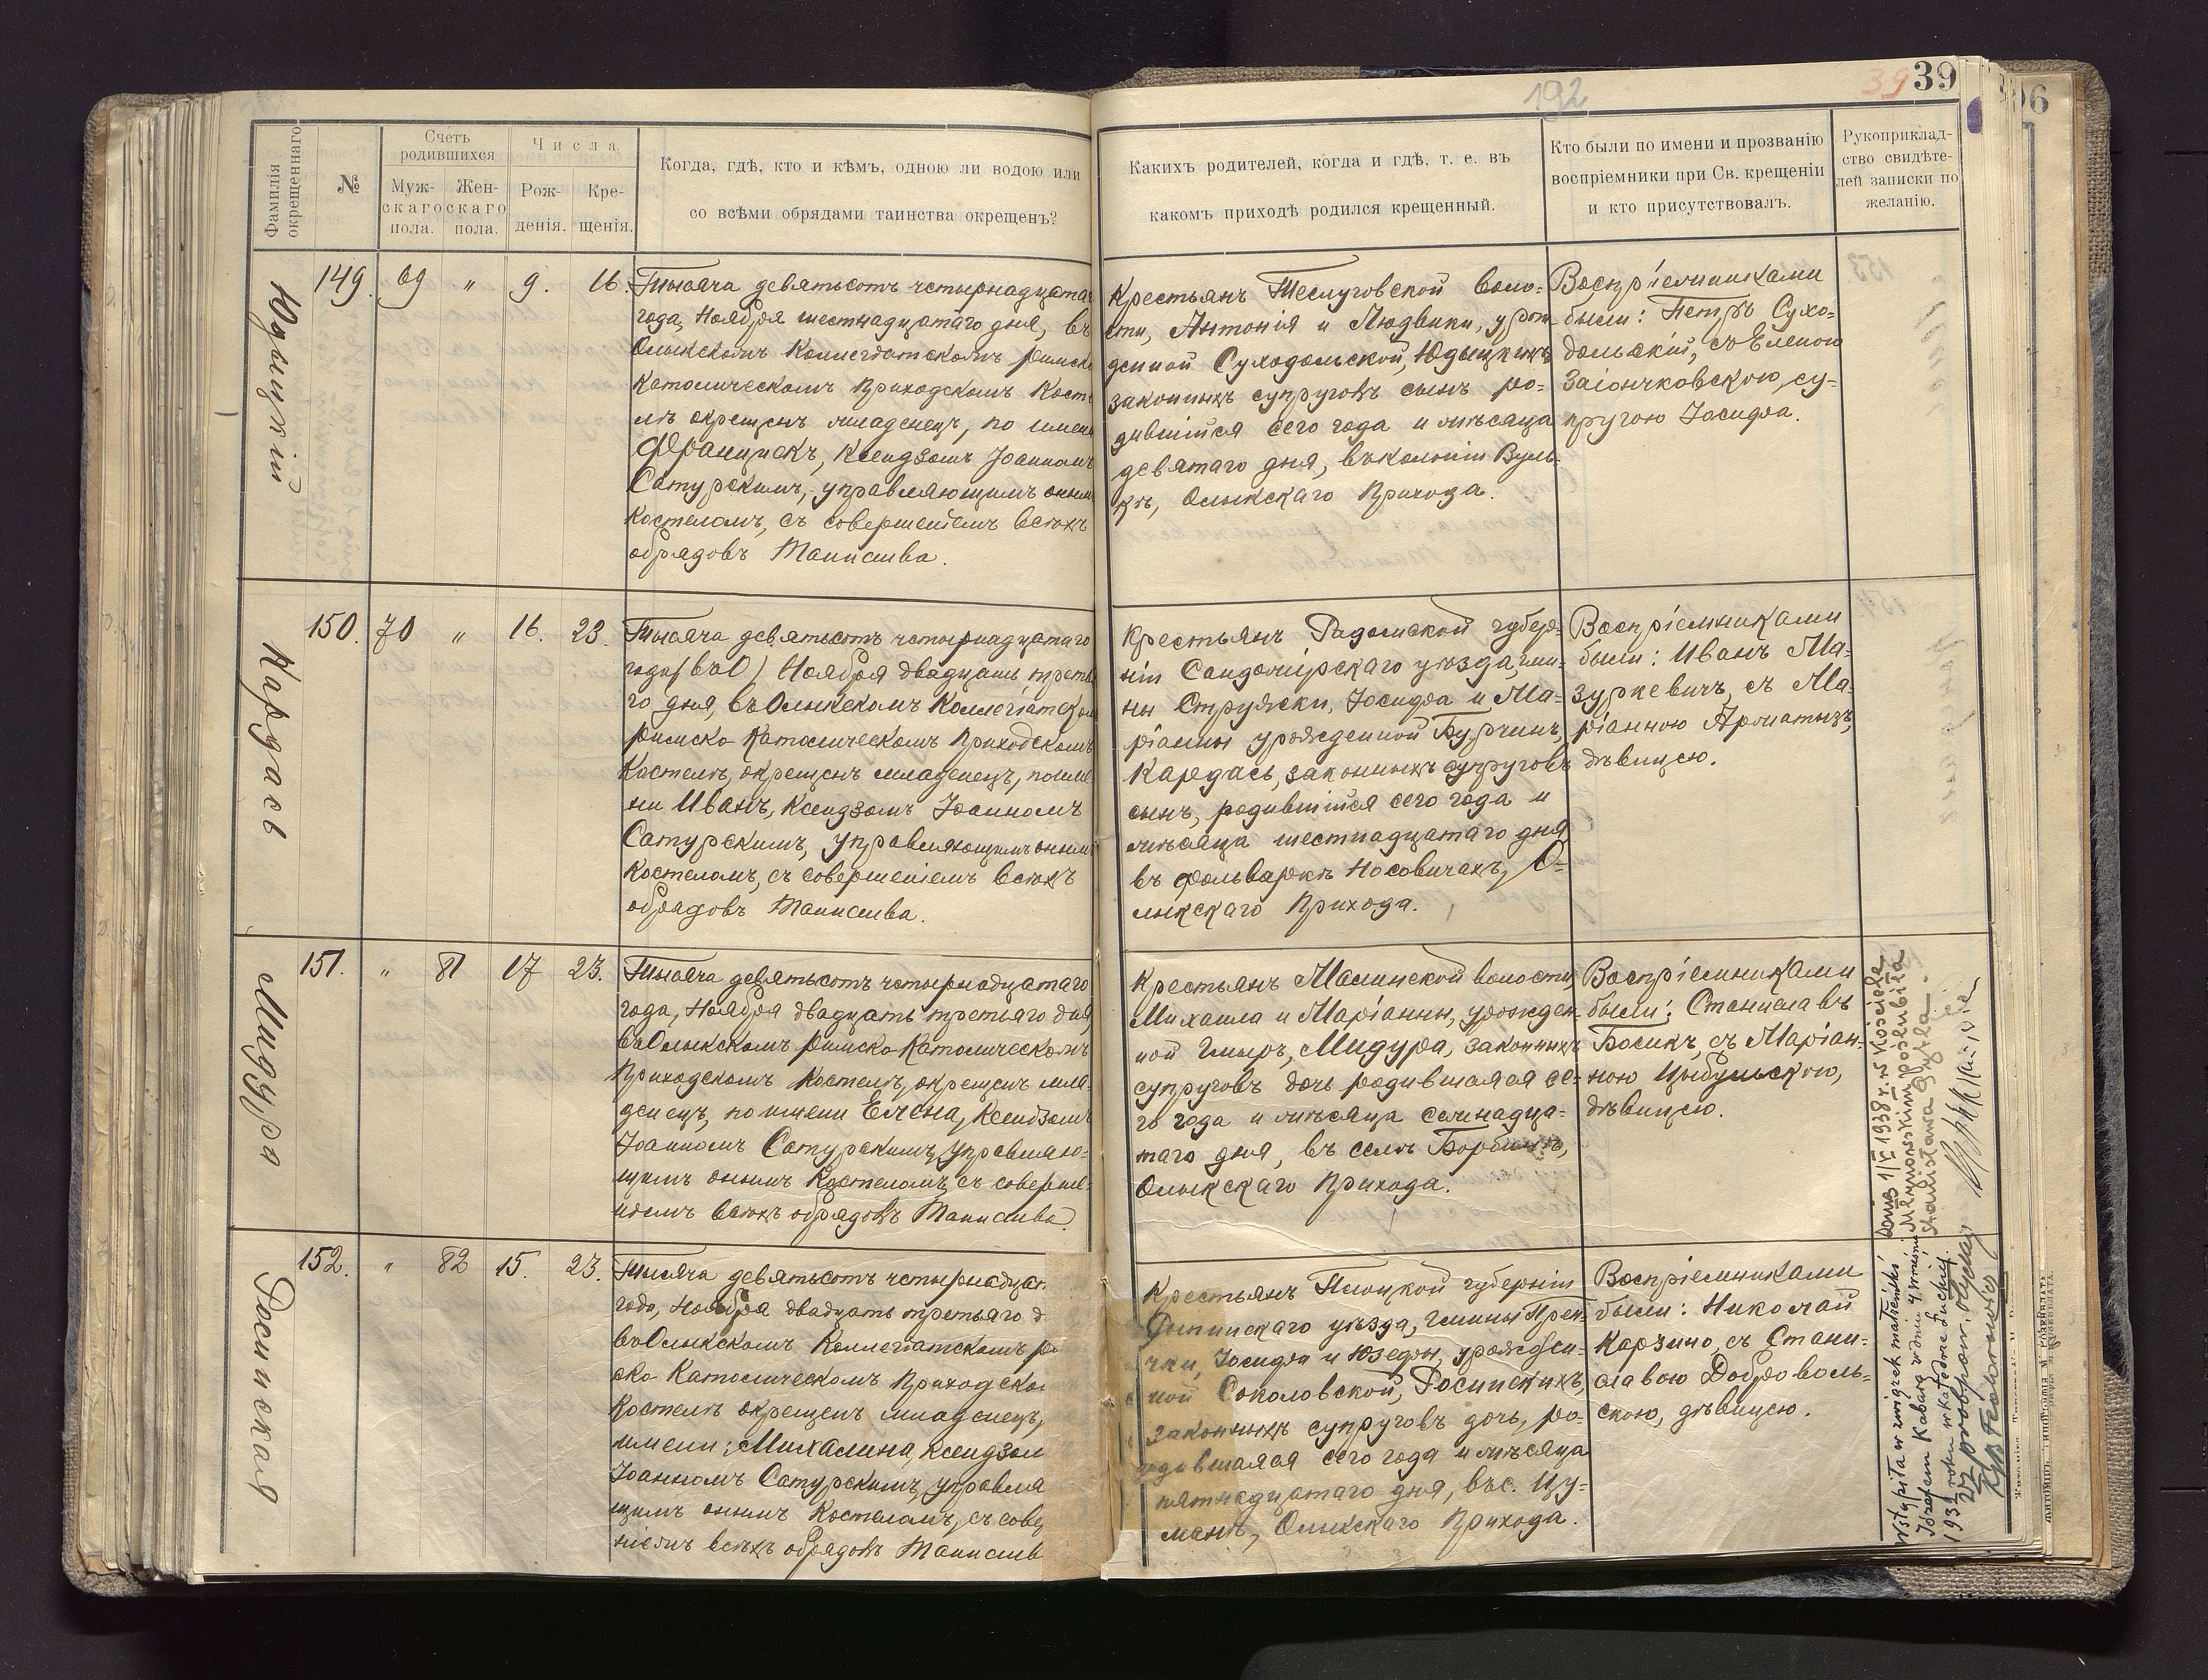 192
39
39
96
Фамилія окрещеннаго
№
Счетъ родившихся
Муж-скаго пола.
Жен-скаго пола.
Числа.
Рож-денія.
Кре-щенія.
Когда, гдѣ, кто и кѣмъ, одною ли водою или
со всѣми обрядами таинства окрещенъ?
Какихъ родителей, когда и гдѣ, т. е. въ
какомъ приходѣ родился крещенный.
Кто были по имени и прозванію
воспріемники при Св. крещеніи
и кто присутствовалъ.
Рукоприклад-
ство свидѣте-
лей записки по
желанію.
Юдыцкій
149. 69 " 9. 16.
Тысяча девятьсотъ четырнадцата
года, Ноября шестнадцатаго дня, въ
Олыкскомъ Коллегіатскомъ Римско
Католическомъ Приходскомъ Косте
лѣ окрещенъ младенецъ, по имени
Францискъ, Ксендзомъ Іоанномъ
Сатурскимъ, управляющимъ онымъ
Костеломъ, съ совершеніемъ всѣхъ
обрядовъ Таинства.
Крестьянъ Теслуговской воло-
сти, Антонія и Людвики, урож-
денной Суходольской, Юдыцкихъ
законныхъ супруговъ сынъ ро-
дившійся сего года и мѣсяца
девятаго дня, въ колоніи Вуль-
кѣ, Олыкскаго Прихода.
Воспріемниками
были: Петръ Сухо-
дольскій, съ Еленою
Заіончковскою, су-
пругою Іосифа.
Кардась
150. 70 " 16. 23.
Тысяча девятьсотъ четырнадцатаго
года (въ О) Ноября двадцать треть
го дня, въ Олыкскомъ Коллегіатском
Римско Католическомъ Приходскомъ
Костелѣ, окрещенъ младенецъ, по име
ни Иванъ, Ксендзомъ Іоанномъ
Сатурскимъ, управляющимъ онымъ
Костеломъ, съ совершеніемъ всѣхъ
обрядовъ Таинства.
Крестьянъ Радомской губер-
ніи Сандомірскаго уѣзда, гми-
ны Стружски, Іосифа и Ма-
ріанны урожденной Бурчинъ,
Кардась, законныхъ супруговъ
сынъ, родившійся сего года и
мѣсяца шестнадцатаго дня
въ фольваркѣ Носовичахъ, О-
лыкскаго Прихода.
Воспріемниками
были: Иванъ Ма-
зуркевичъ, съ Ма-
ріанною Ароматызъ,
дѣвицею.
Мидура
151. " 81 17 23.
Тысяча девятьсотъ четырнадцатаго
года, Ноября двадцать третьяго дня,
въ Олыкскомъ Римско Католическомъ
Приходскомъ Костелѣ, окрещенъ мла-
денецъ, по имени Елена, Ксендзомъ
Іоанномъ Сатурскимъ, управляю-
щимъ онымъ Костеломъ, съ соверше-
ніемъ всѣхъ обрядовъ Таинства.
Крестьянъ Малинской волости,
Михаила и Маріанны, урожден-
ной Гмыръ, Мидура, законныхъ
супруговъ дочь родившаяся се-
го года и мѣсяца семнадца-
таго дня, въ селѣ Борбинѣ,
Олыкскаго Прихода.
Воспріемниками
были: Станиславъ
Босикъ, съ Маріан-
ною Цыбульскою,
дѣвицею.
Росинская
152. " 82 15. 23.
Тысяча девятьсотъ четырнадцат
года, Ноября двадцать третьяго д
въ Олыкскомъ Коллегіатскомъ Ри
ско Католическомъ Приходско
Костелѣ окрещенъ младенецъ,
имени: Михалина, Ксендзом
Іоанномъ Сатурскимъ, управля
щимъ онымъ Костеломъ, съ сове
ніемъ всѣхъ обрядовъ Таинств
Крестьянъ Плоцкой губерніи
Рыпинскаго уѣзда, гмины
Іосифа и Юзефы, урожден-
ной Соколовской, Росинскихъ,
законныхъ супруговъ дочь, ро-
дившаяся сего года и мѣсяца
пятнадцатаго дня, въ с. Цу-
манѣ, Олыкскаго Прихода.
Воспріемниками
были: Николай
Карзино, съ Стани-
славою Доброволь-
скою, дѣвицею.
Wstąpiła w związek małżeński
Józefem Kabarą w dniu
1939 roku w katedrze Łuckiej.
1938 r. w Kościele
Stanisława